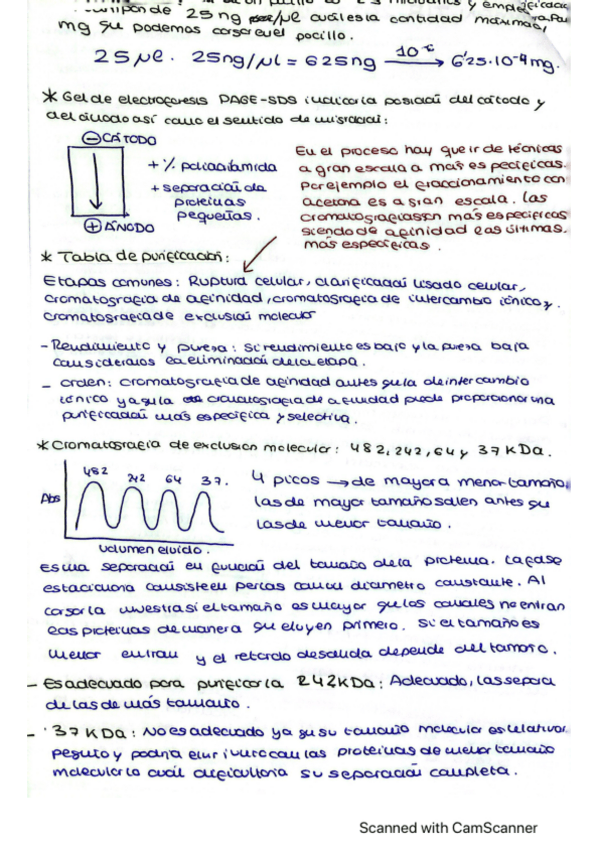 de 25 ng /µl cuál es la cantidad máxima,
mg que podemos cargar en el pocillo.
25 µl . 25ng/µl = 625ng 10⁻⁶ → 6'25.10⁻⁴mg.
* Gel de electroforesis PAGE-SDS indicar la posición del cátodo y
del ánodo así como el sentido de migración:
⊖ CÁTODO
+ % poliacrilamida
+ separación de
proteínas
pequeñas.
⊕ ÁNODO
En el proceso hay que ir de técnicas
a gran escala a más específicas.
Por ejemplo el fraccionamiento con
acetona es a gran escala. Las
cromatografías son más específicas
siendo de afinidad las últimas.
más específicas.
* Tabla de purificación:
Etapas comunes: Ruptura celular, clarificación lisado celular,
cromatografía de afinidad, cromatografía de intercambio iónico y
cromatografía de exclusión molecular
- Rendimiento y pureza: Si rendimiento es bajo y la pureza baja
consideramos la eliminación de la etapa.
- Orden: cromatografía de afinidad antes que la de intercambio
iónico ya que la cromatografía de afinidad puede proporcionar una
purificación más específica y selectiva.
* Cromatografía de exclusión molecular: 482, 242, 64 y 37 KDa.
482 242 64 37.
Abs
volumen eluido.
4 picos → de mayor a menor tamaño,
las de mayor tamaño salen antes que
las de menor tamaño.
Es una separación en función del tamaño de la proteína. La fase
estacionaria consiste en perlas con un diámetro constante. Al
cargar la muestra si el tamaño es mayor que los canales no entran
las proteínas de manera que eluyen primero. Si el tamaño es
menor entran y el retardo de salida depende del tamaño.
- Es adecuado para purificar la 242KDa: Adecuado, las separa
de las de más tamaño.
- 37 KDa: No es adecuado ya que su tamaño molecular es relativ.
pequeño y podría eluir junto con las proteínas de menor tamaño
molecular lo cual dificultaría su separación completa.
Scanned with CamScanner